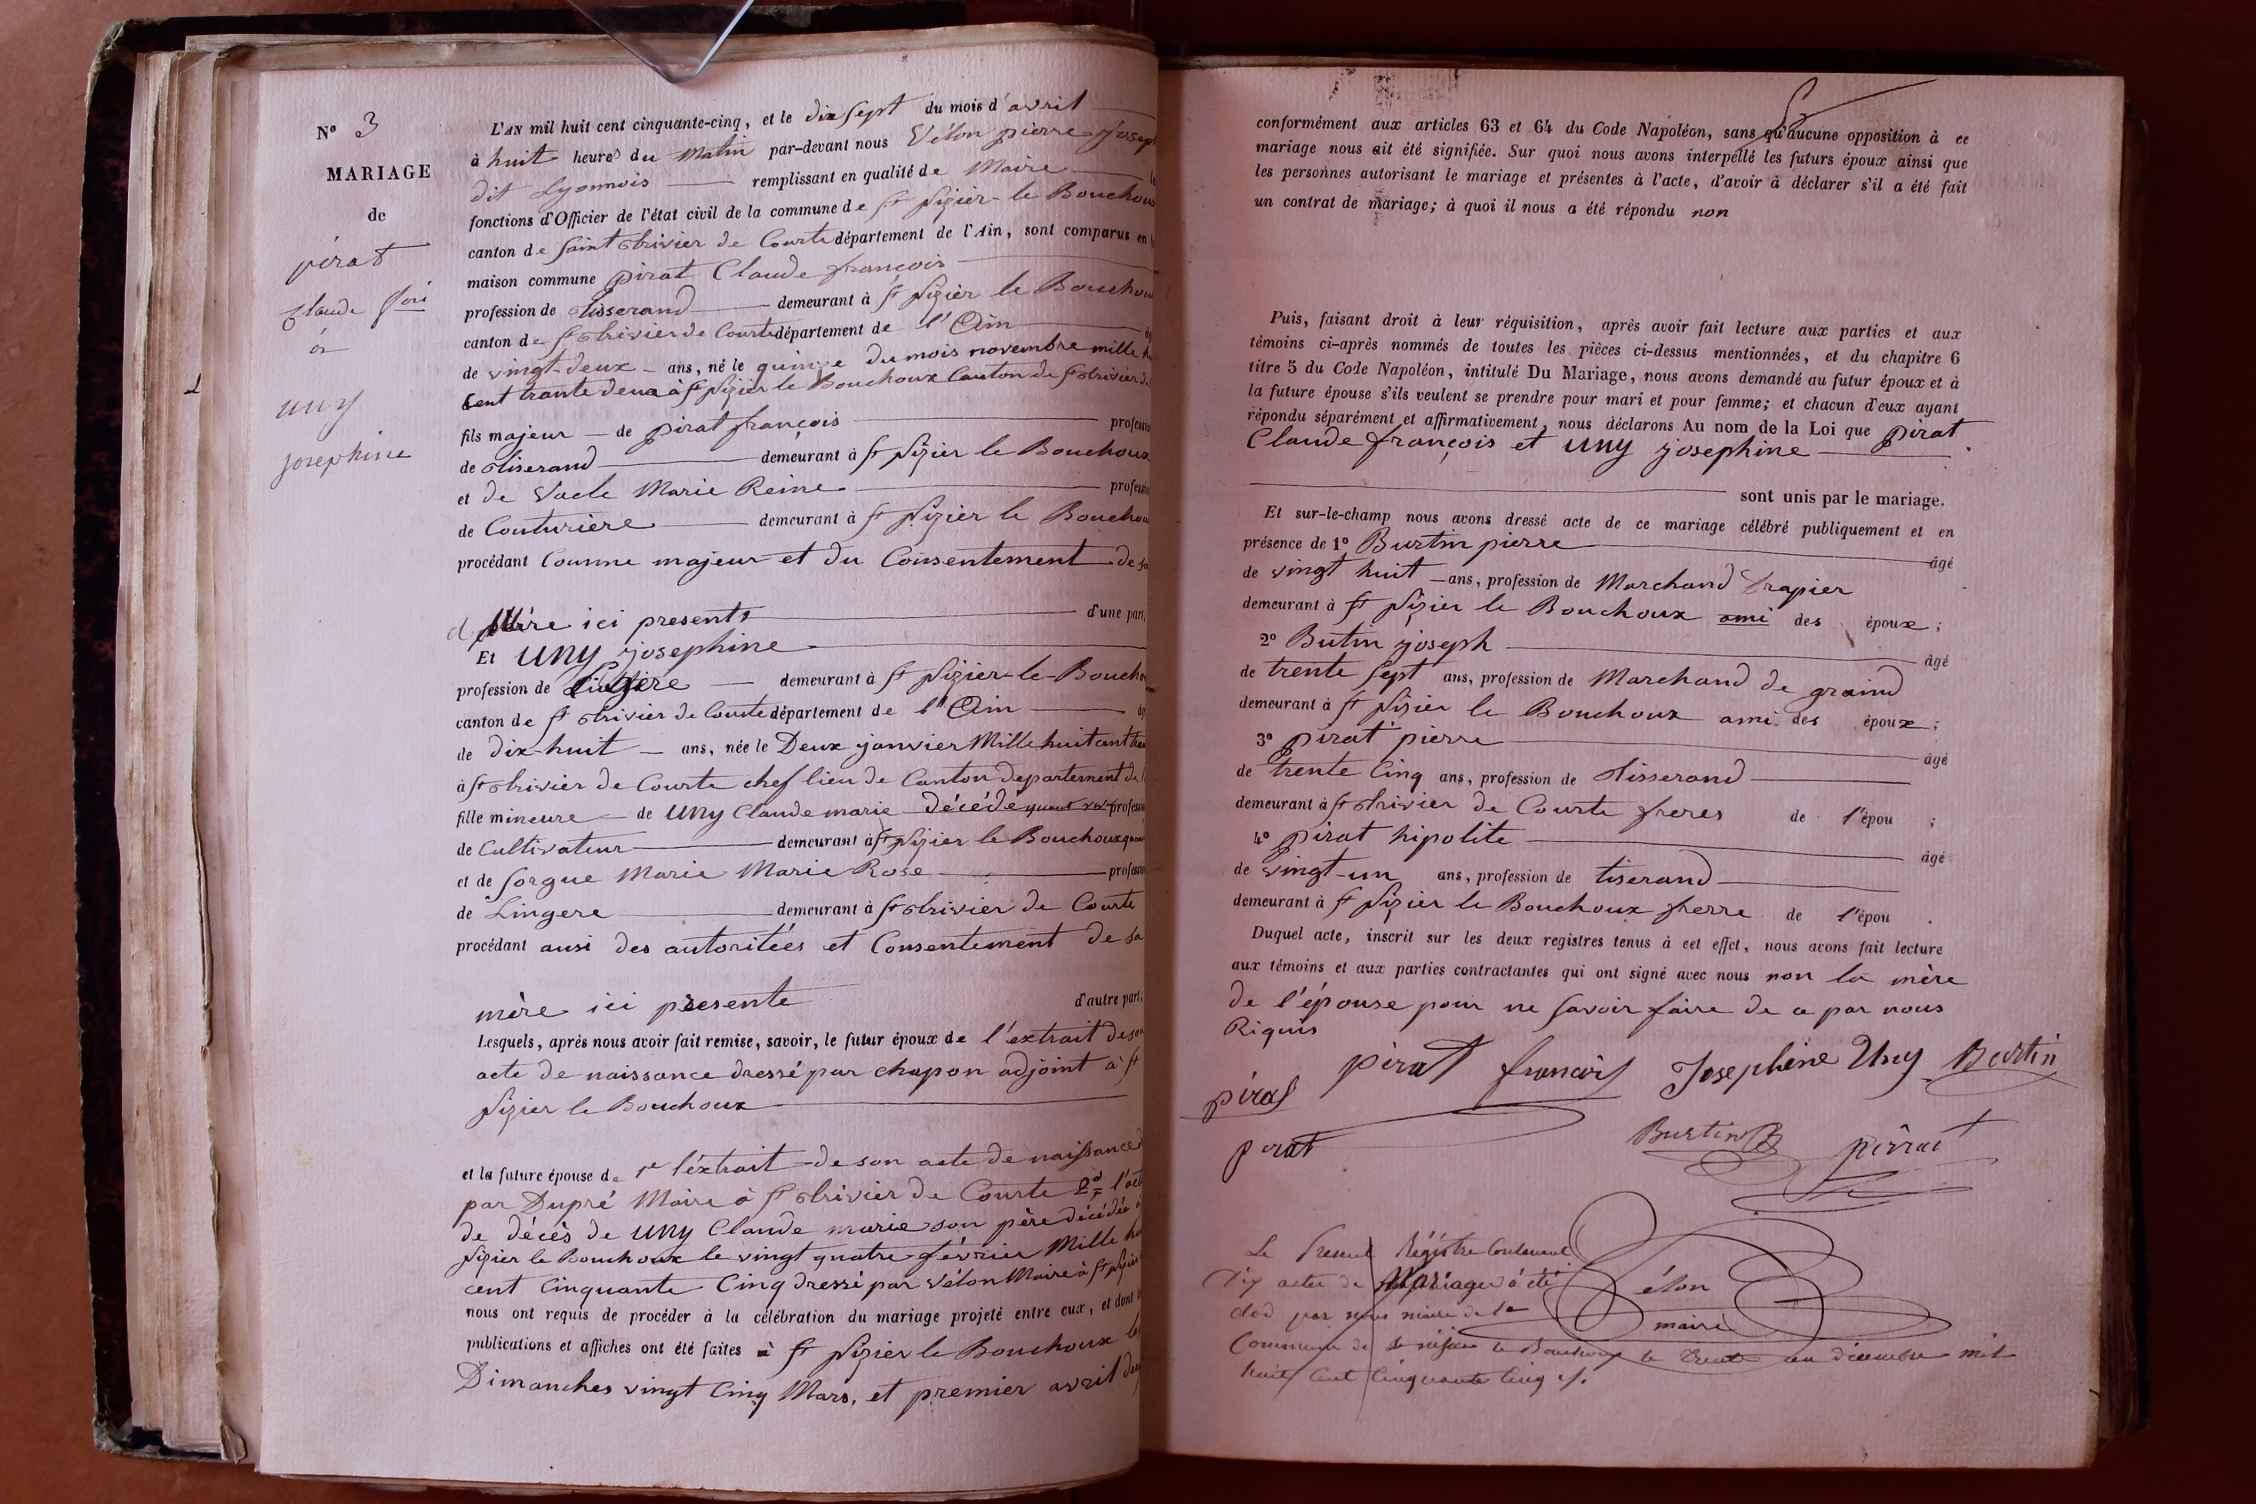 N° 3
MARIAGE
de
pirat
Claude fois
&
uny
josephine
L'AN mil huit cent cinquante-cinq, et le dix sept du mois d'avril
à huit heures du Matin par-devant nous Vélon pierre Joseph
dit Lyonnois remplissant en qualité de Maire
fonctions d'Officier de l'état civil de la commune de St Nizier-le Bouchoux
canton de Saint Trivier de Courte département de l'Ain, sont comparus en
maison commune pirat Claude françois
profession de Tisserand demeurant à St Nizier le Bouchou
canton de St Trivier de Courte département de l'Ain
de vingt-deux ans, né le quinze du mois novembre mille
cent trante deux à St Nizier le Bouchoux Canton de St Trivier de
fils majeur de pirat françois profession
de Tiserand demeurant à St Nizier le Bouchoux
et de Vacle Marie Reine profession
de Couturière demeurant à St Nizier le Bouchou
procédant Comme majeur et du Consentement de sa
Mère ici presents d'une part,
Et uny josephine
profession de Lingère demeurant à St Nizier-le-Boucho
canton de St Trivier de Courte département de l'Ain
de dix-huit ans, née le Deux janvier Mille huit cent
à St Trivier de Courte chef lieu de Canton departement de l
fille mineure de uny Claude marie décédé profession
de Cultivateur demeurant à St Nizier le Bouchoux
et de Sorgue Marie Marie Rose profession
de Lingere demeurant à St Trivier de Courte
procédant ausi des autoritées et Consentement de sa
mère ici presente d'autre part;
Lesquels, après nous avoir fait remise, savoir, le futur époux de l'extrait de son
acte de naissance dressé par chapon adjoint à St
Nizier le Bouchoux
et la future épouse de 1e l'éxtrait de son acte de naissance
par Dupré Maire à St Trivier de Courte 2d l'act
de décès de uny Claude marie son père décédée à
Nizier le Bouchoux le vingt quatre février Mille
cent Cinquante Cinq dressé par Vélon Maire à St Nizier
nous ont requis de procéder à la célébration du mariage projeté entre eux, et dont
publications et affiches ont été faites à St Nizier le Bouchoux le
Dimanches vingt Cinq Mars, et premier avril
conformément aux articles 63 et 64 du Code Napoléon, sans qu'aucune opposition à ce
mariage nous ait été signifiée. Sur quoi nous avons interpellé les futurs époux ainsi que
les personnes autorisant le mariage et présentes à l'acte, d'avoir à déclarer s'il a été fait
un contrat de mariage; à quoi il nous a été répondu non
Puis, faisant droit à leur réquisition, après avoir fait lecture aux parties et aux
témoins ci-après nommés de toutes les pièces ci-dessus mentionnées, et du chapitre 6
titre 5 du Code Napoléon, intitulé Du Mariage, nous avons demandé au futur époux et à
la future épouse s'ils veulent se prendre pour mari et pour femme; et chacun d'eux ayant
répondu séparément et affirmativement, nous déclarons Au nom de la Loi que pirat
Claude françois et uny josephine
sont unis par le mariage.
Et sur-le-champ nous avons dressé acte de ce mariage célébré publiquement et en
présence de 1° Burtin pierre âgé
de vingt huit ans, profession de Marchand Drapier
demeurant à St Nizier le Bouchoux ami des époux;
2° Butin joseph âgé
de trente Sept ans, profession de Marchand de graind
demeurant à St Nizier le Bouchoux ami des époux;
3° pirat pierre âgé
de trente Cinq ans, profession de Tisserand
demeurant à St Trivier de Courte freres de l'épou ;
4° pirat hipolite âgé
de vingt-un ans, profession de tiserand
demeurant à St Nizier le Bouchoux frerre de l'épou .
Duquel acte, inscrit sur les deux registres tenus à cet effet, nous avons fait lecture
aux témoins et aux parties contractantes qui ont signé avec nous non la mère
de l'épouse pour ne savoir faire de ce par nous
Riquis
pirat pirat francois Josephine Uny Burtin
pirat Burtin pirrat
Vélon
maire
Le Present Régistre Contenant
dix actes de Mariages à été
clos par nous maire de la
Commune de St nizier le Bouchoux le trente un décembre mil
huit Cent Cinquante Cinq